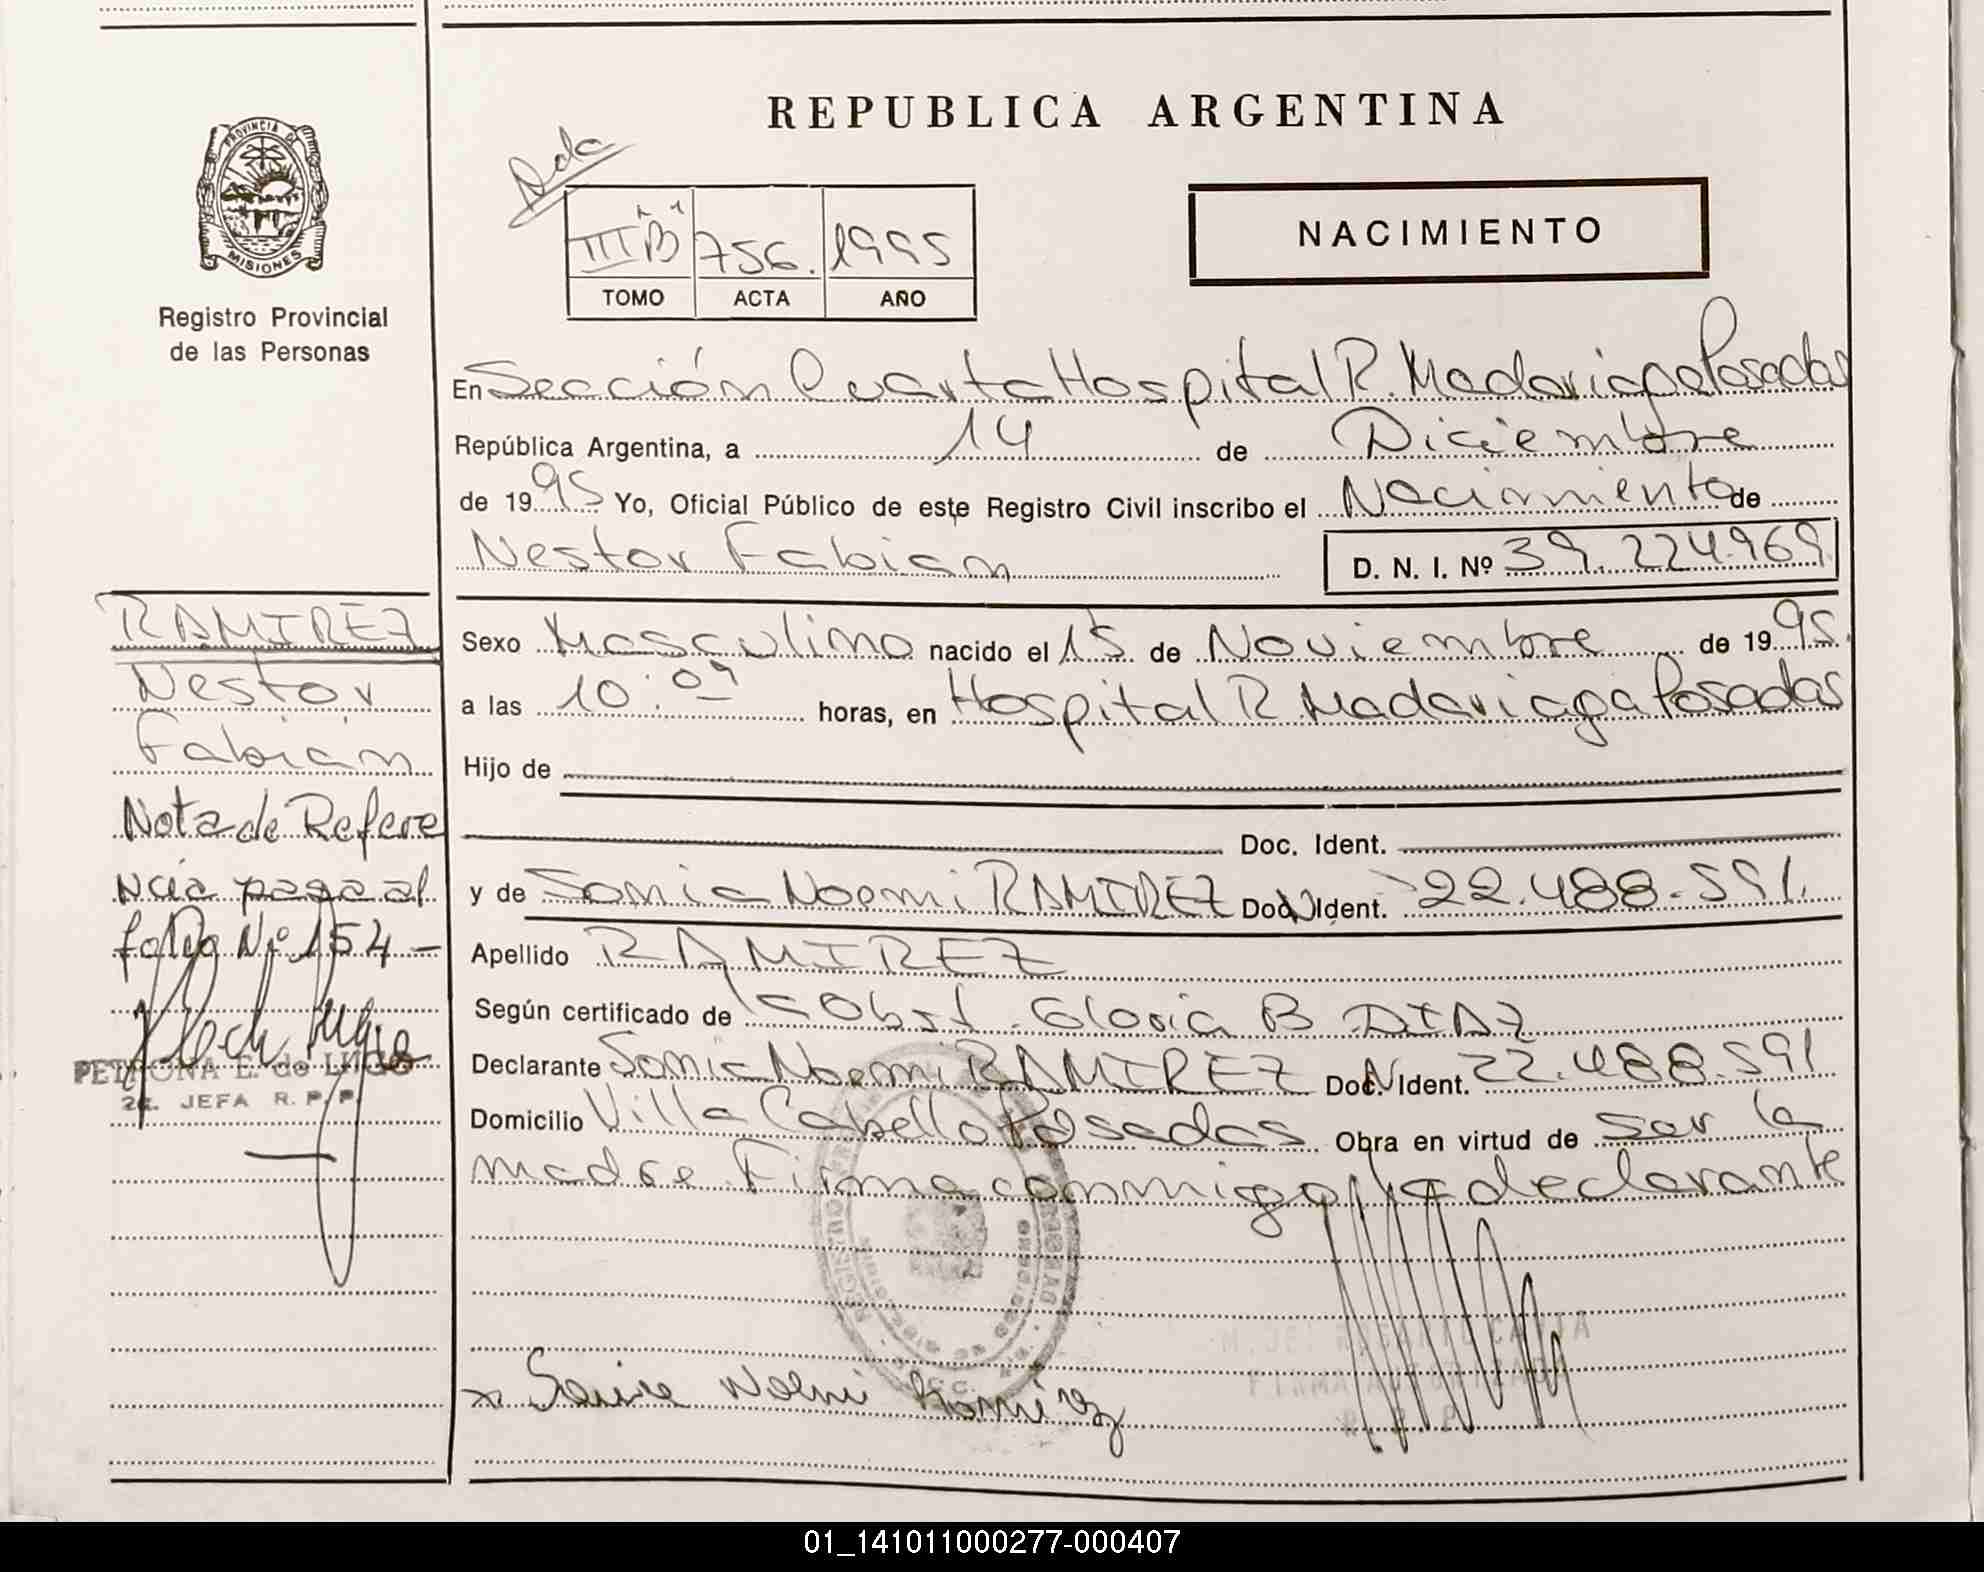 REPUBLICA ARGENTINA
PROVINCIA DE
MISIONES
Registro Provincial
de las Personas
III B 756. 1995
TOMO ACTA AÑO
NACIMIENTO
En Sección Cuarta Hospital R. Madariaga Posadas
República Argentina, a 14 de Diciembre
de 1995 Yo, Oficial Público de este Registro Civil inscribo el Nacimiento de
Nestor Fabian D. N. I. Nº 39.224.969
RAMIREZ
Nestor
Fabián
Nota de Refere
ncia pasa al
folio Nº 154 -
PETRONA E. de LUGO
2a. JEFA R. P. P.
Sexo Masculino nacido el 15 de Noviembre de 1995.
a las 10:09 horas, en Hospital R. Madariaga Posadas
Hijo de
Doc. Ident.
y de Sonia Noemi RAMIREZ Doc. Ident. 22.488.591.
Apellido RAMIREZ
Según certificado de la Obst. Gloria B DIAZ
Declarante Sonia Noemi RAMIREZ Doc. Ident. 22.488.591
Domicilio Villa Cabello Posadas Obra en virtud de ser la
madre. Firma conmigo la declarante
Noemi Ramirez
01_141011000277-000407